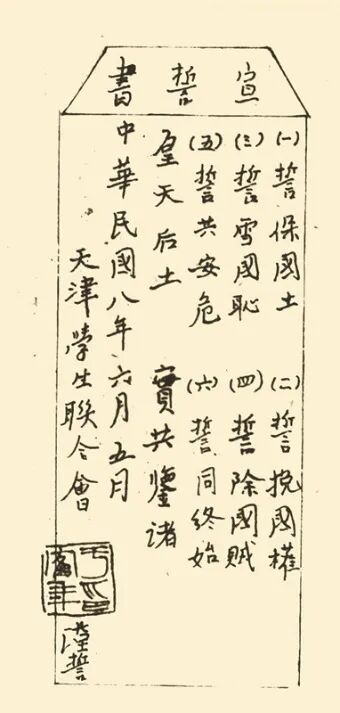 宣誓書
(一)誓保國土 (二)誓挽國權
(三)誓雪國恥 (四)誓除國賊
(五)誓共安危 (六)誓同終始
皇天后土 實共鑒諸
中華民國八年六月五日
天津學生聯合會 謹誓